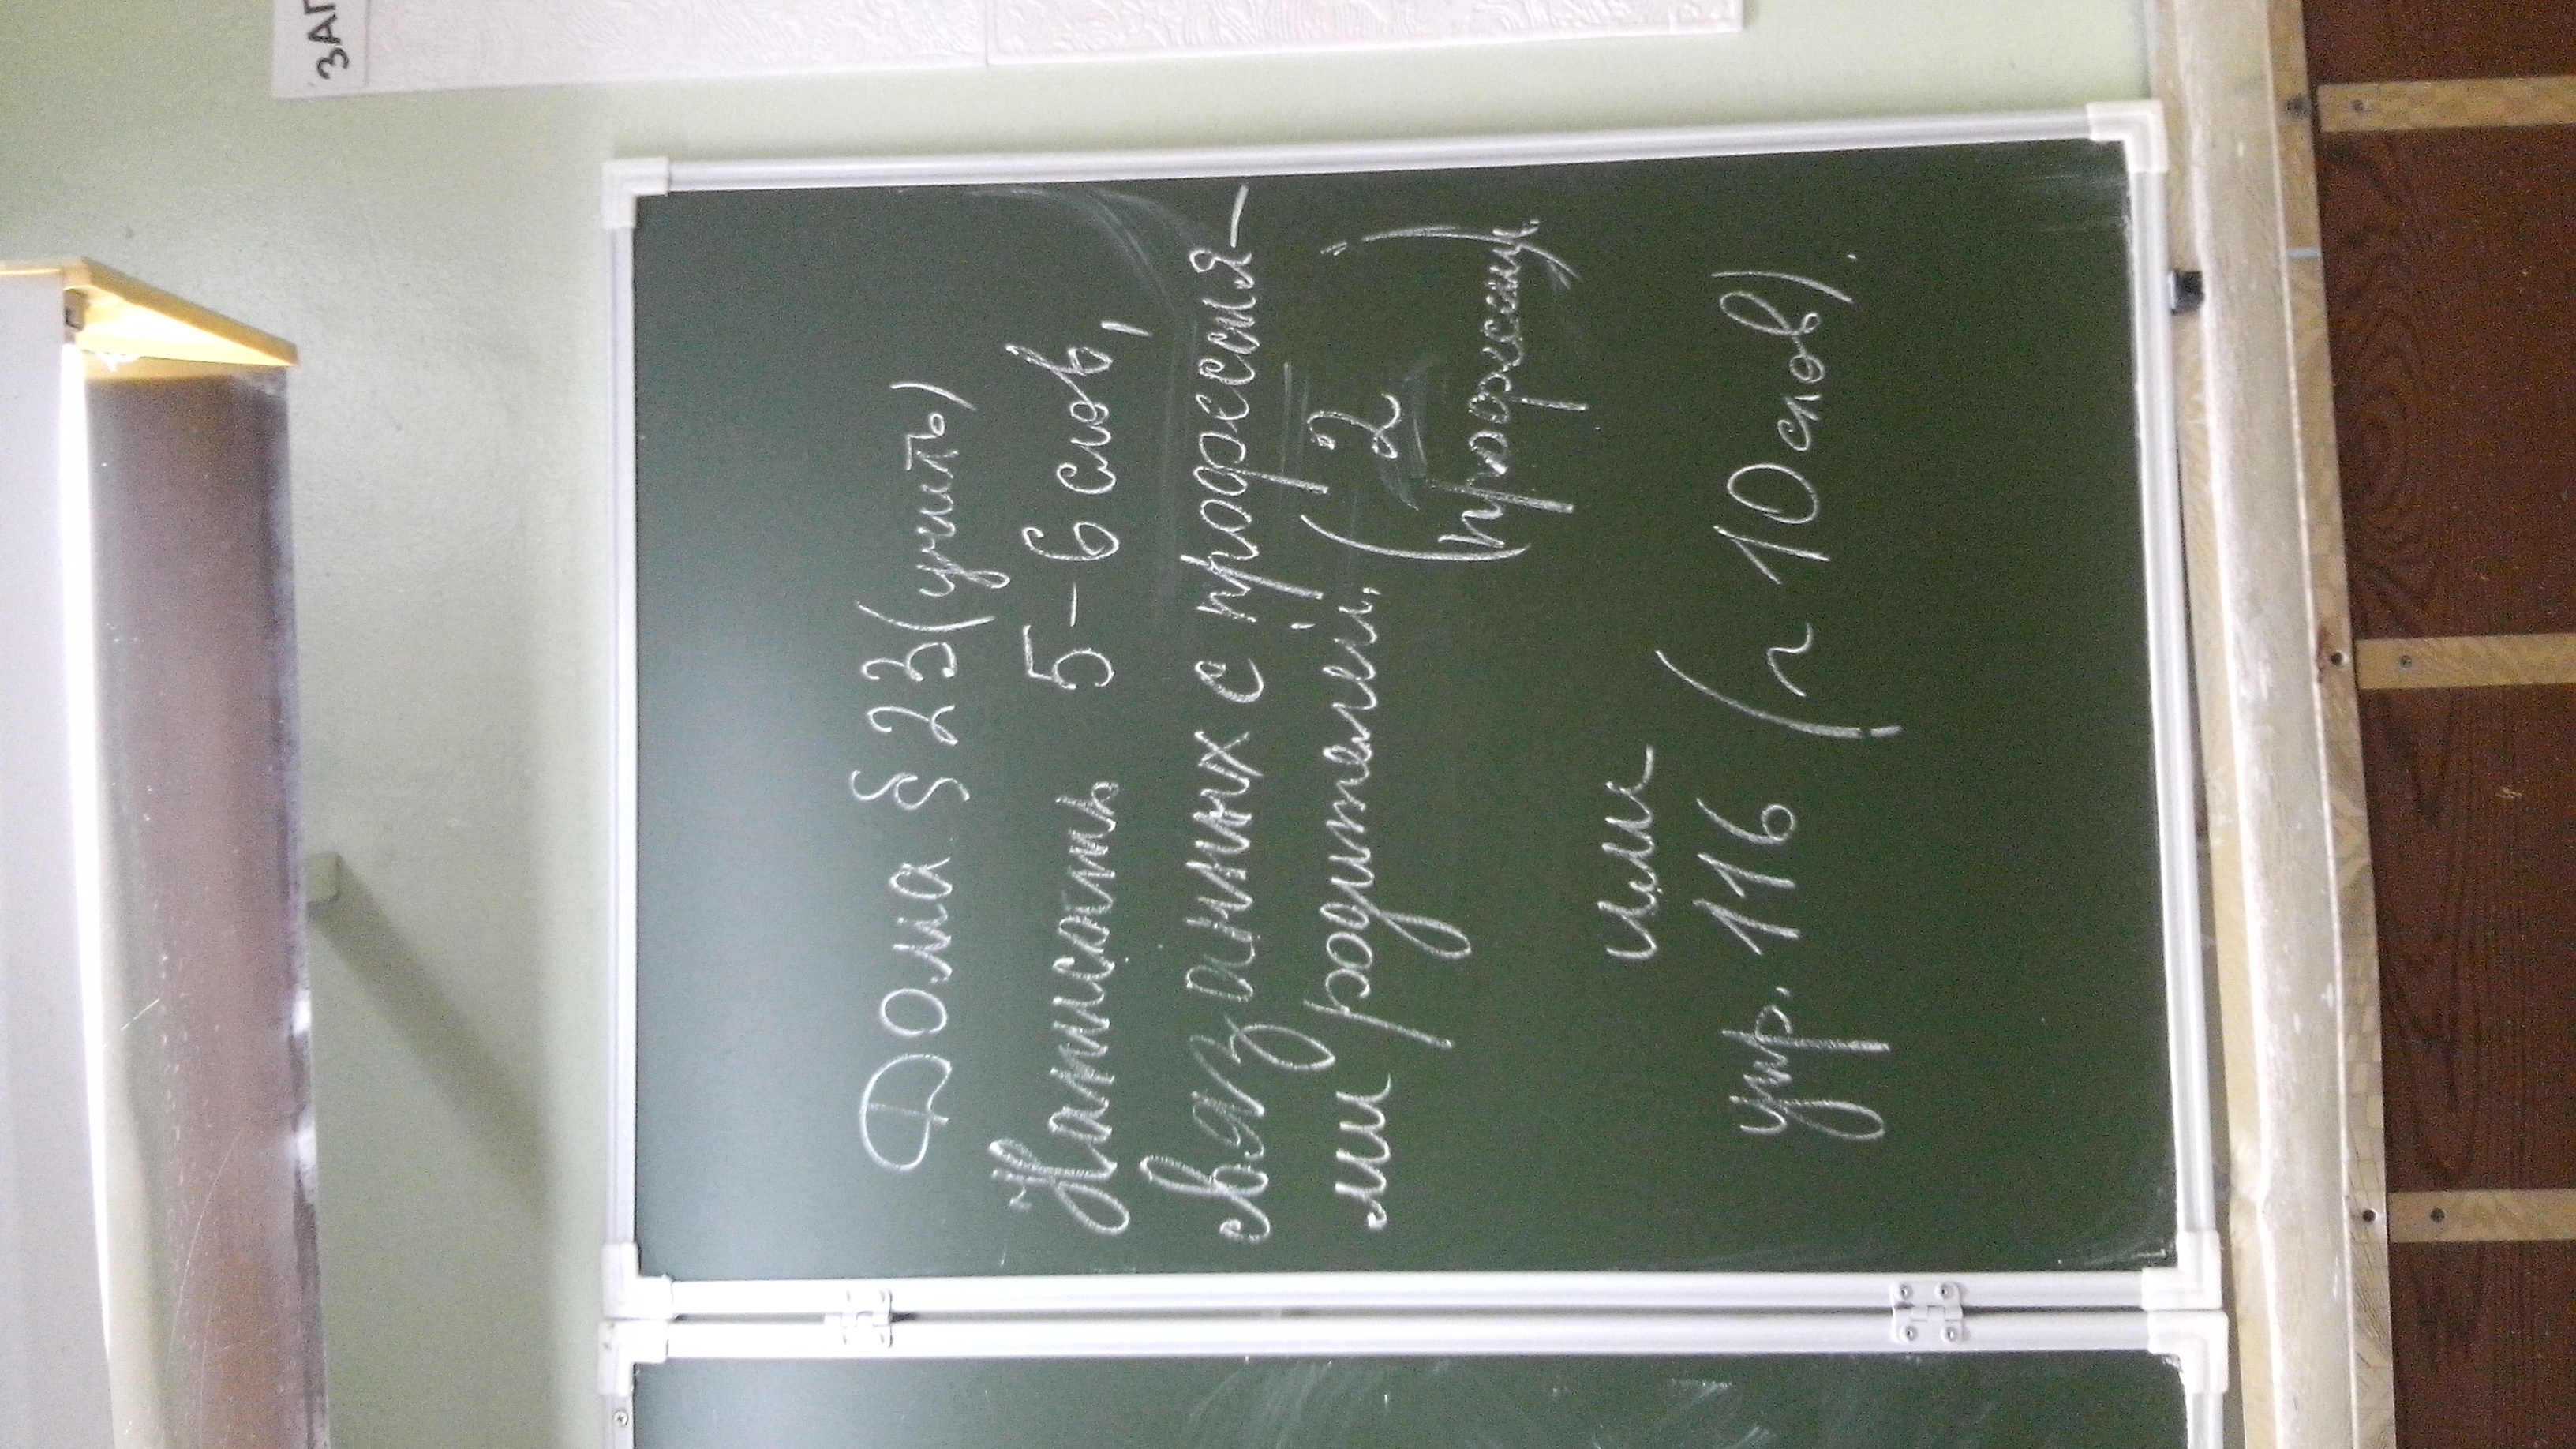 ЗАП
Дома § 23 (учить)
"Написать 5-6 слов,
связанных с профессия-
ми родителей. ( 2 ")
(професси)
или
упр. 116 (~ 10 слов).